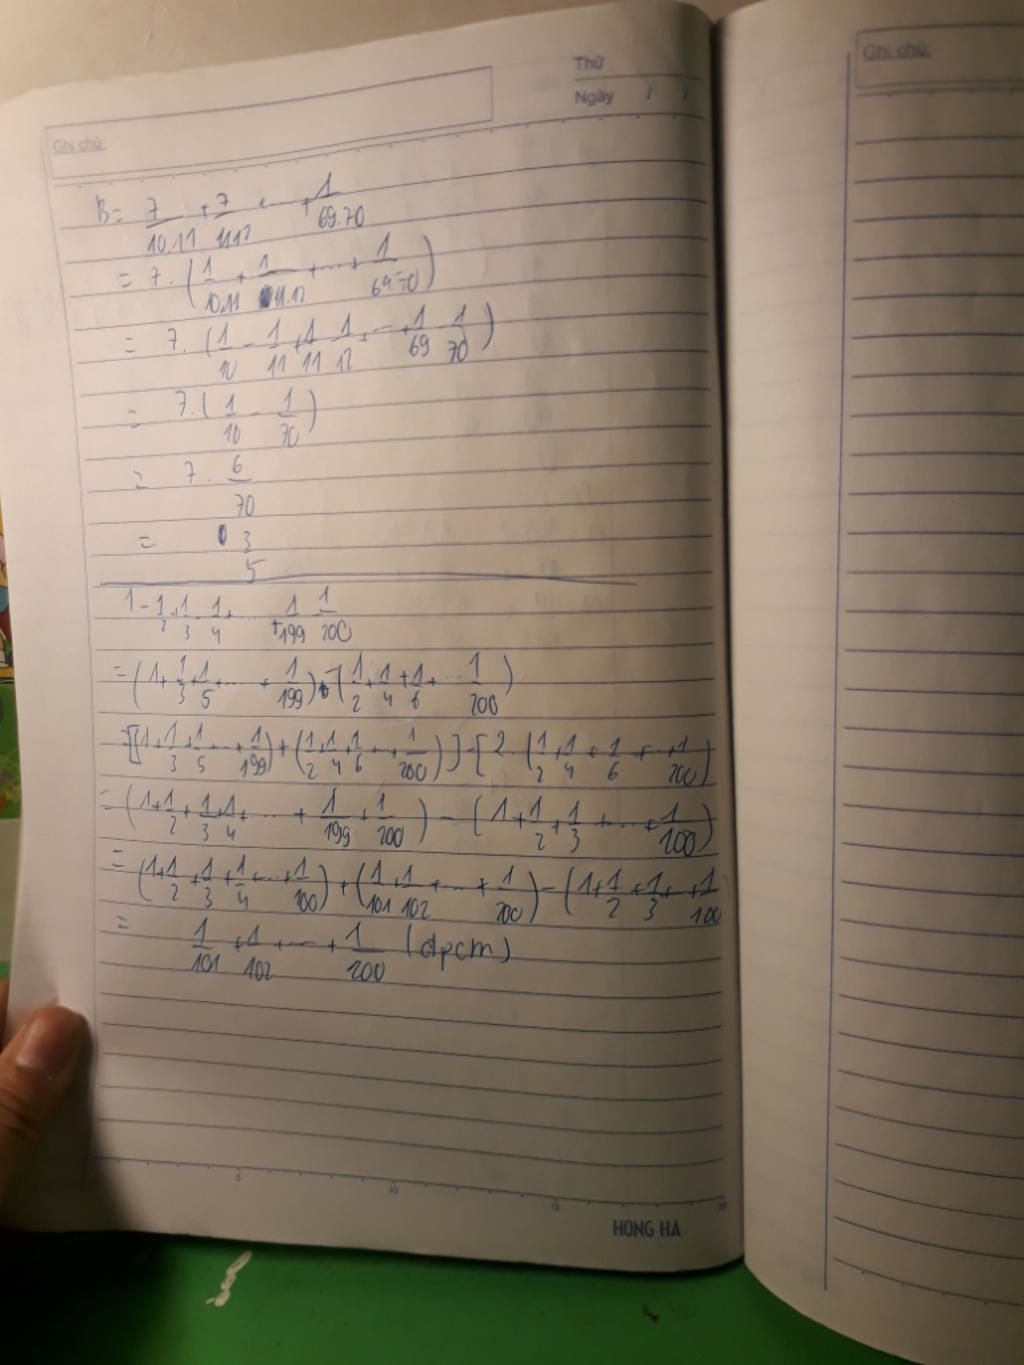 Thứ
Ngày / /
Ghi chú:
Ghi chú:
B = 7/10.11 + 7/11.12 + ... + 1/69.70
= 7.(1/10.11 + 1/11.12 + ... + 1/69.70)
= 7.(1/10 - 1/11 + 1/11 - 1/12 + ... + 1/69 - 1/70)
= 7.(1/10 - 1/70)
= 7.6/70
= 3/5
1 - 1/2 + 1/3 - 1/4 + ... + 1/199 - 1/200
= (1 + 1/3 + 1/5 + ... + 1/199) - (1/2 + 1/4 + 1/6 + ... 1/200)
= [(1 + 1/3 + 1/5 + ... + 1/199) + (1/2 + 1/4 + 1/6 + ... + 1/200)] - [2.(1/2 + 1/4 + 1/6 + ... + 1/200)
= (1 + 1/2 + 1/3 + 1/4 + ... + 1/199 + 1/200) - (1 + 1/2 + 1/3 + ... + 1/100)
= (1 + 1/2 + 1/3 + 1/4 + ... + 1/100) + (1/101 + 1/102 + ... + 1/200) - (1 + 1/2 + 1/3 + ... + 1/100
= 1/101 + 1/102 + ... + 1/200 (dpcm)
5 10 15 20
HONG HA